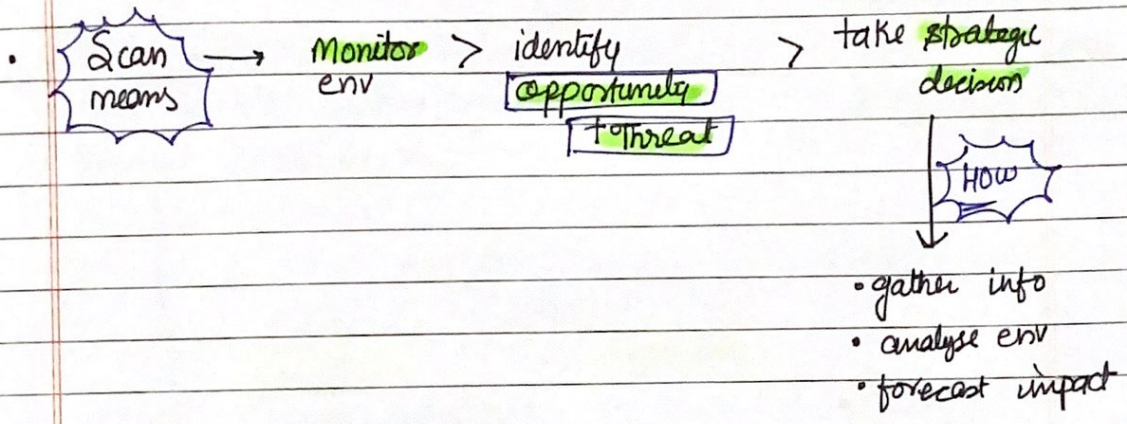 • Scan means → Monitor env > identify opportunity + Threat > take strategic decision
HOW
• gather info
• analyse env
• forecast impact